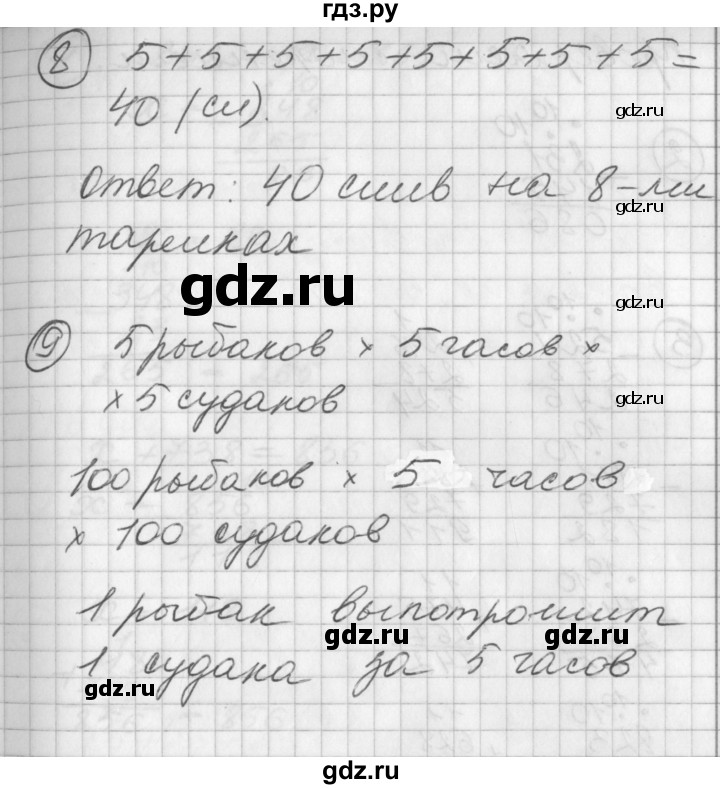 гдз.ру
8 5+5+5+5+5+5+5+5=
40 (сл).
gdz.ru
Ответ: 40 слив на 8-ми
gdz.ru
тарелках
gdz.ru
gdz.ru
9 5 рыбаков × 5 часов ×
× 5 судаков
gdz.ru
100 рыбаков × 5 часов
× 100 судаков
1 рыбак выпотрошит
gdz.ru
gdz.ru
1 судака за 5 часов
gdz.ru
gdz.ru